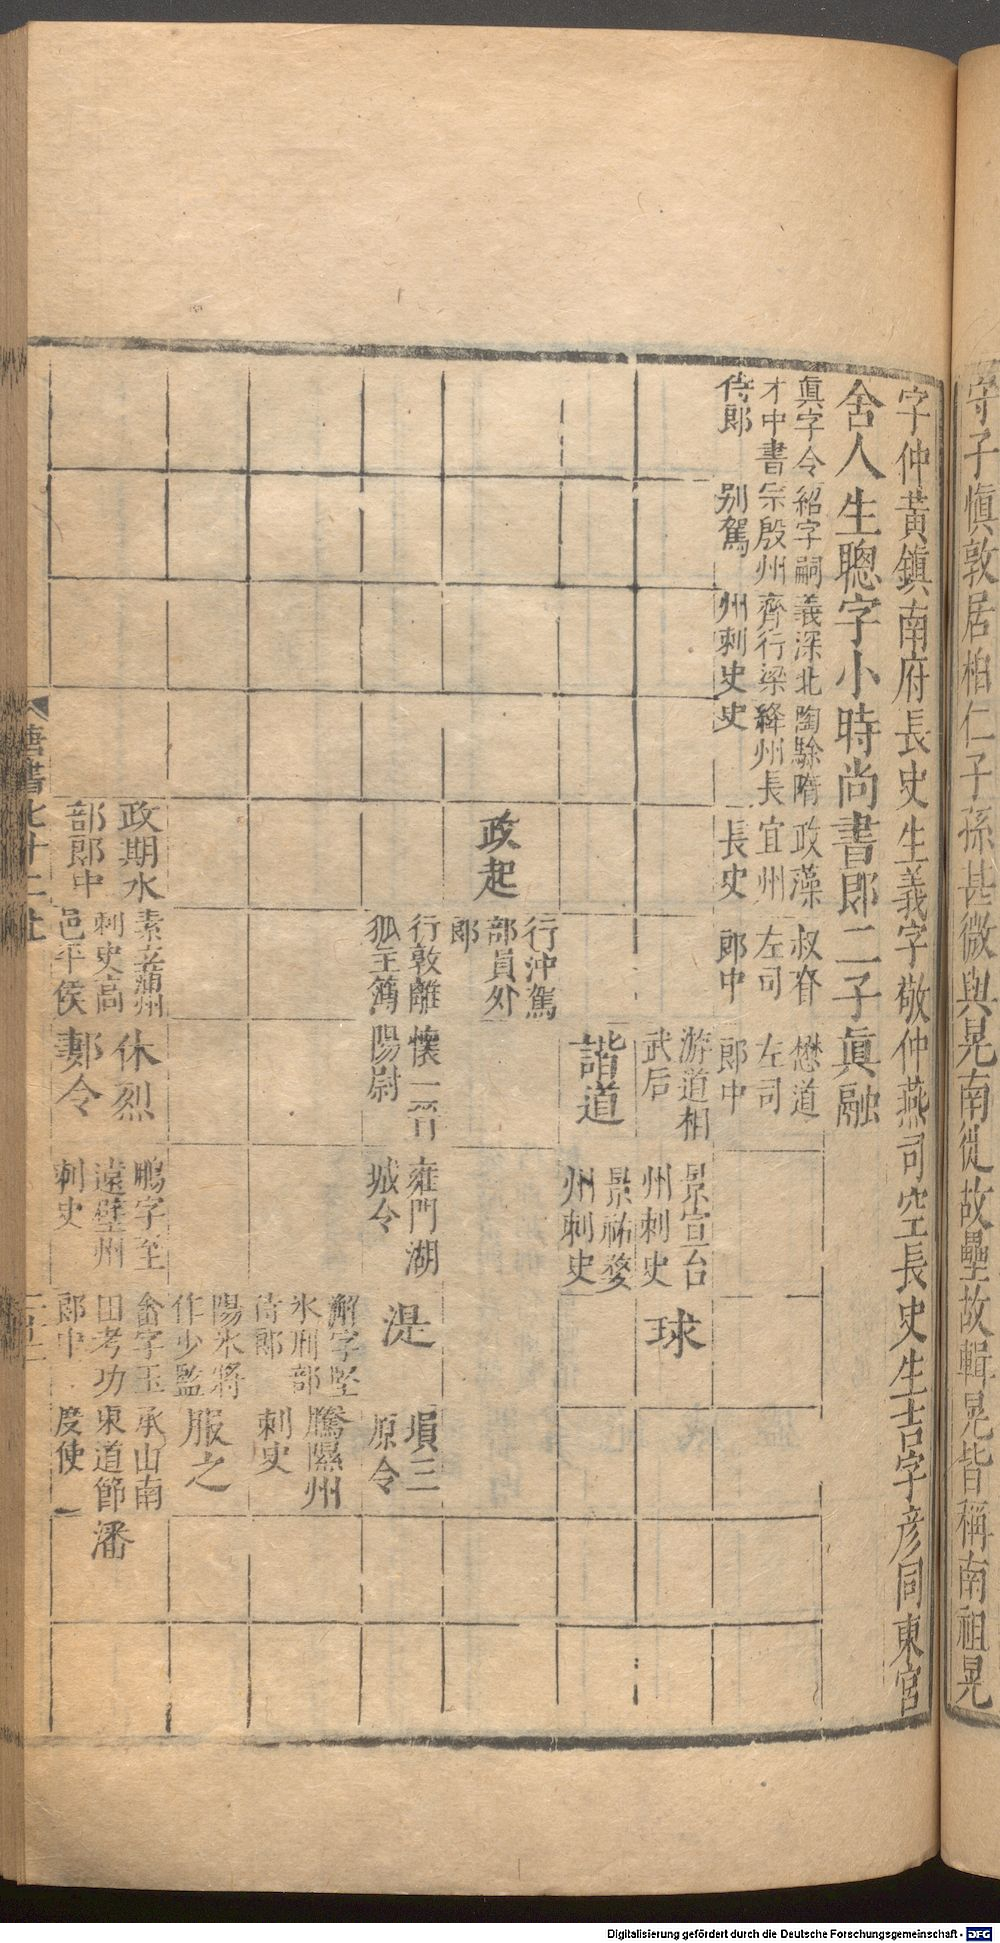 守子慎敦居柏仁子孫甚微與晃南徙故壘故輯晃皆稱南祖晃
字仲黃鎮南府長史生義字敬仲燕司空長史生吉字彦同東宮
舍人生聰字小時尚書郎二子眞融
眞字令
才中書
侍郎
紹字嗣
宗殷州
别駕
義深北
齊行梁
州刺史
陶駼隋
絳州長
史
政藻
宜州
長史
叔脊
左司
郎中
懋道
左司
郎中
游道相
武后
景宣台
州刺史
球
景祐婺
州刺史
諧道
政起
行沖駕
部員外
郎
行敦離
狐主簿
懐一晉
陽尉
雍門湖
城令
湜
塤三
原令
解字堅
冰刑部
侍郎
騰隰州
刺史
陽氷將
作少監
服之
政期水
部郎中
素立蒲州
刺史高
邑平侯
休烈
鄴令
鵬字至
遠壁州
刺史
畬字玉
田考功
郎中
承山南
東道節
度使
潘
唐書七十二上
Digitalisierung gefördert durch die Deutsche Forschungsgemeinschaft - DFG